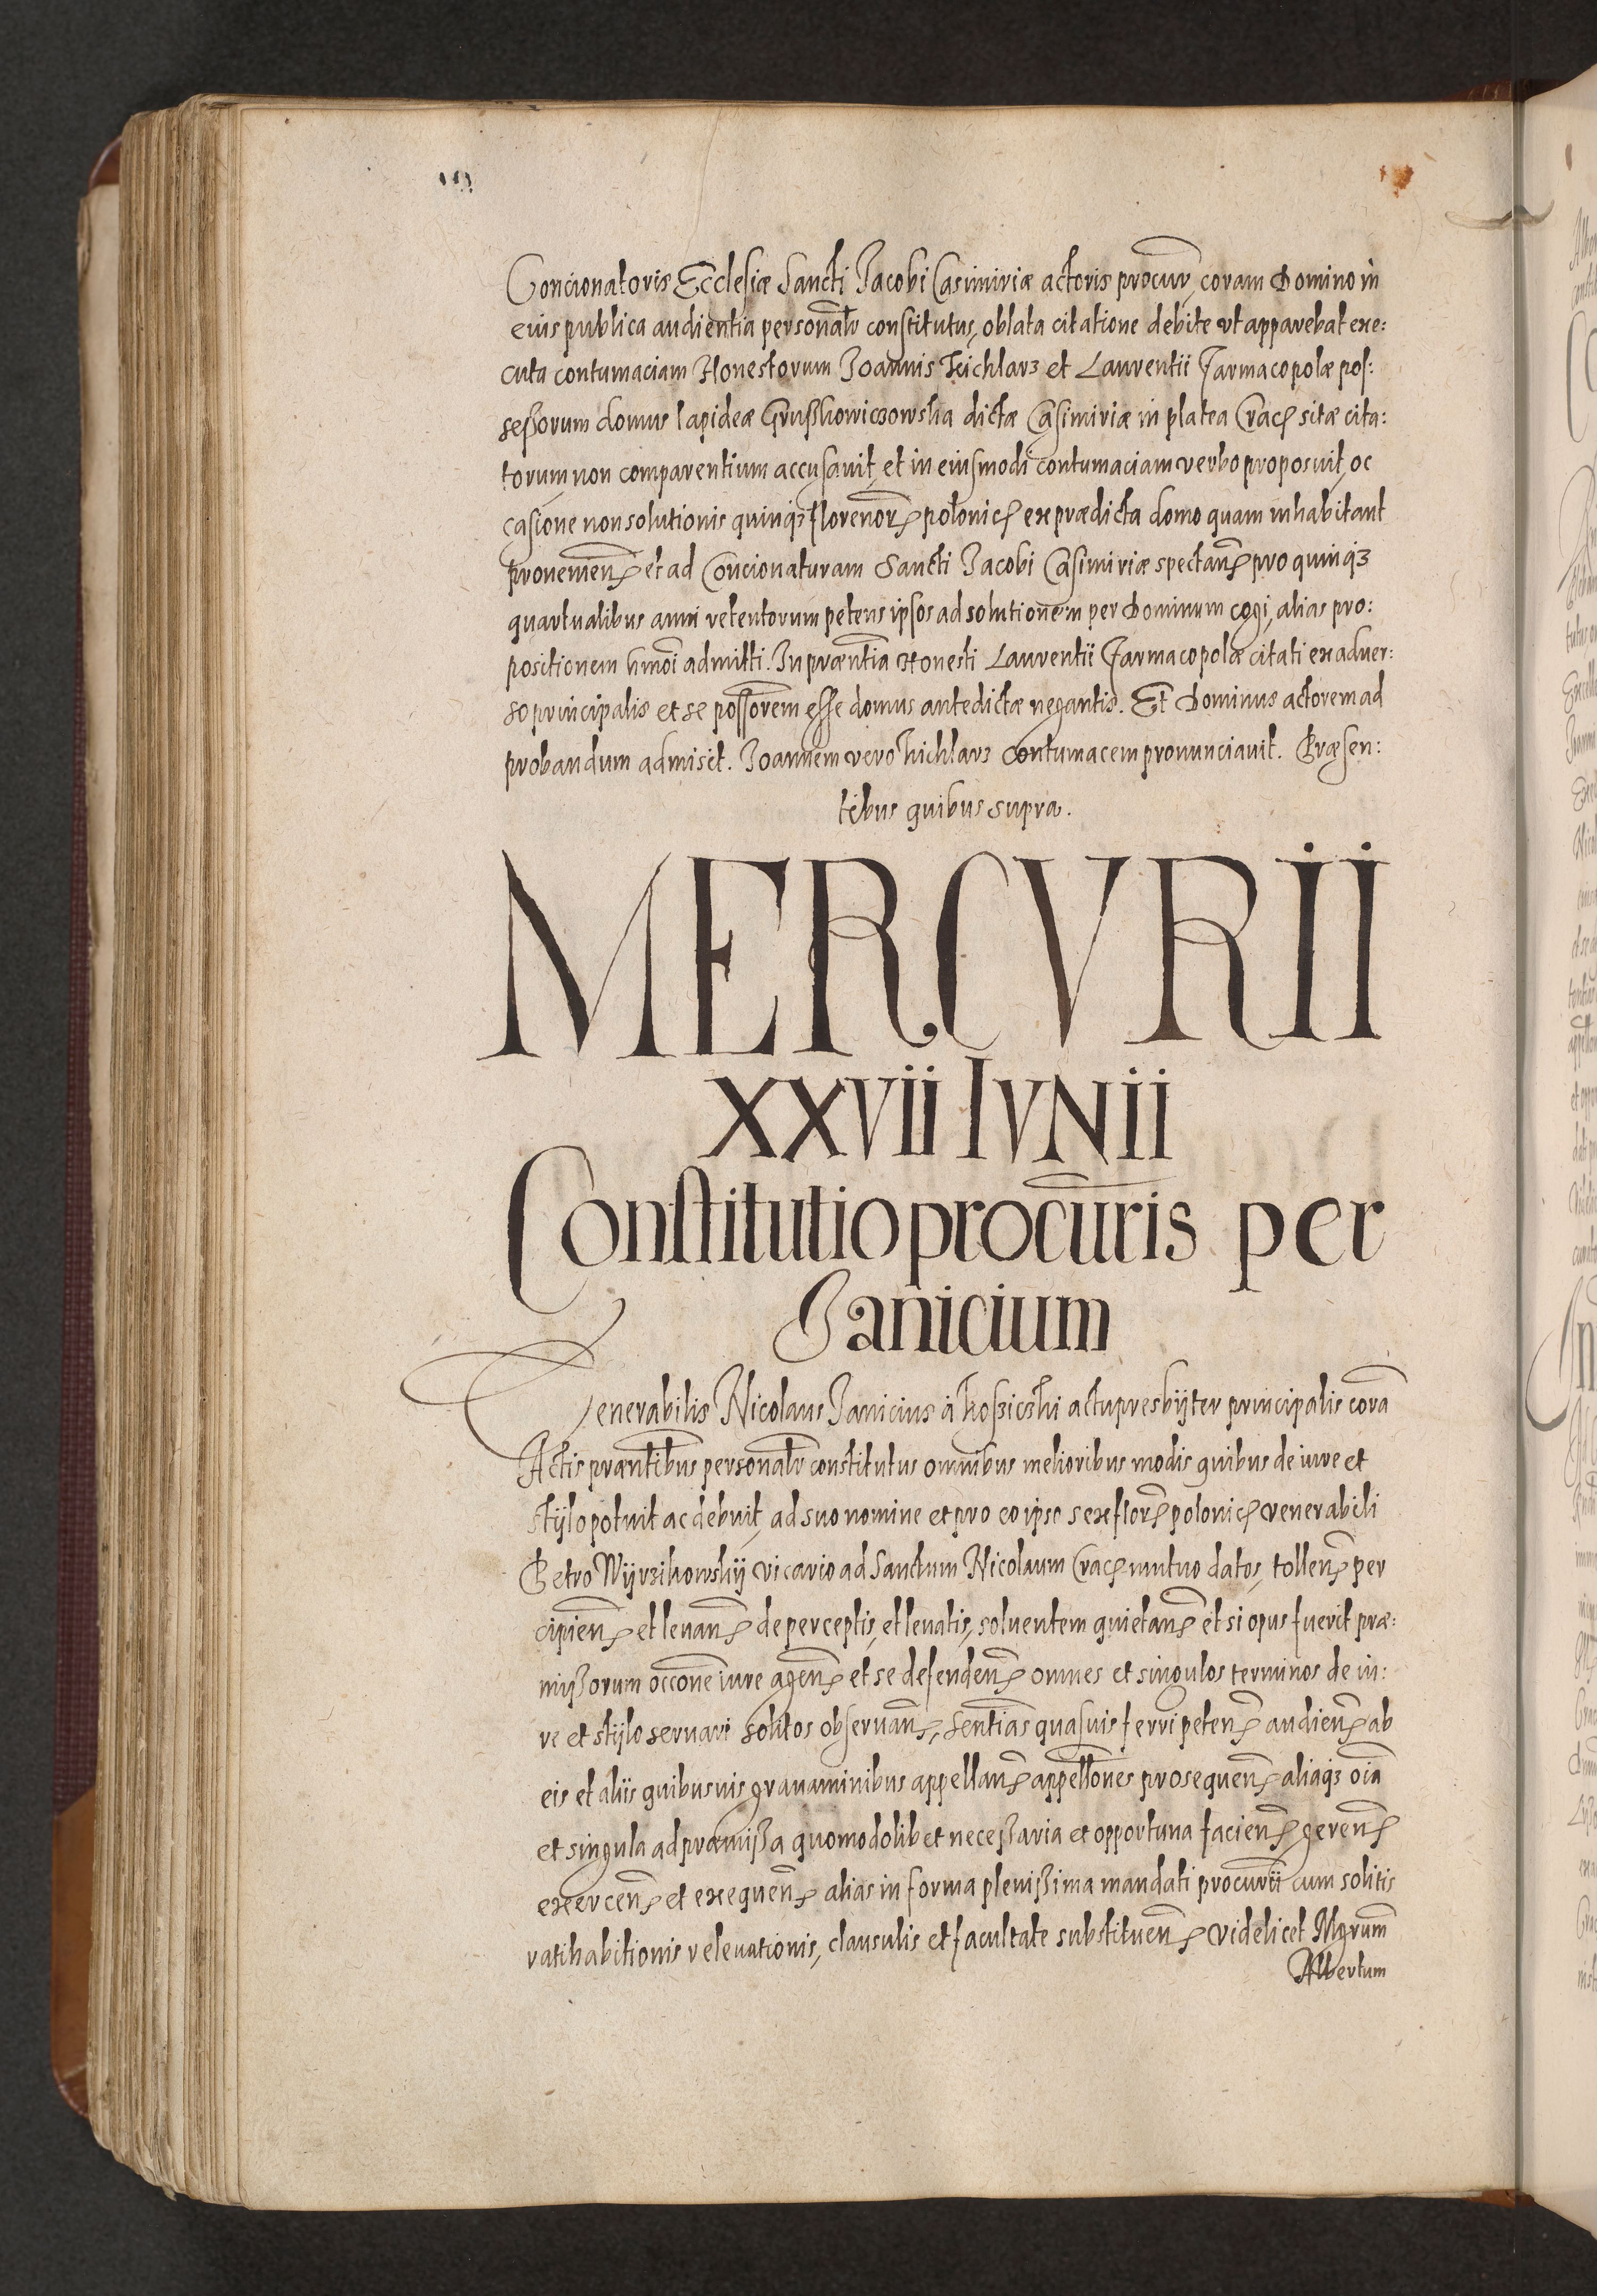 Concionatoris Ecclesiæ Sancti Jacobi Casimiriæ actoris procur, coram Domino in
eius publica audientia personalr constitutus, oblata citatione debite vt apparebat exe:
cuta contumaciam Honestorum Joannis Kichlarz et Laurentii Farmacopolæ pos:
seßorum domus lapideæ Grußkowiczowska dictæ Casimiriæ in platea Crac sitæ cita:
torum non comparentium accusauit, et in eiusmodi contumaciam verbo proposuit, oc
casione non solutionis quinqz florenor polonic ex prædicta domo quam inhabitant
prouenien et ad Concionaturam Sancti Jacobi Casimiriæ spectan pro quinqz
quartualibus anni retentorum petens ipsos ad solutionem per Dominum cogi, alias pro:
positionem hmoi admitti. In præntia Honesti Laurentii Farmacopolæ citati ex aduer:
so principalis et se possorem esse domus antedictæ negantis. Et Dominus actorem ad
probandum admisit. Joannem vero Kichlarz Contumacem pronunciauit. Præsen:
tibus quibus supra.
MERCVRII
XXVII IVNII
Constitutio procuris per
Janicium
Venerabilis Nicolaus Janicius à Koßiczki actu presbyter principalis cora
Actis præntibus personalr constitutus omnibus melioribus modis quibus de iure et
stylo potuit ac debuit, ad suo nomine et pro eo ipso sex flor polonic venerabili
Petro Wyrzikowsky vicario ad Sanctum Nicolaum Crac mutuo datos, tollen per
cipien et leuan de perceptis, et leuatis, soluentem quietan et si opus fuerit præ:
mißorum occone iure agen et se defenden omnes et singulos terminos de iu:
re et stylo seruari solitos obseruan, sentias quasuis ferri peten audien ab
eis et aliis quibusuis grauaminibus appellan appellones prosequen aliaqz oia
et singula ad præmißa quomodolibet neceßaria et opportuna facien geren
exercen et exequen alias in forma plenißima mandati procurii cum solitis
ratihabitionis releuationis, clausulis et facultate substituen videlicet Mgrum
Albertum